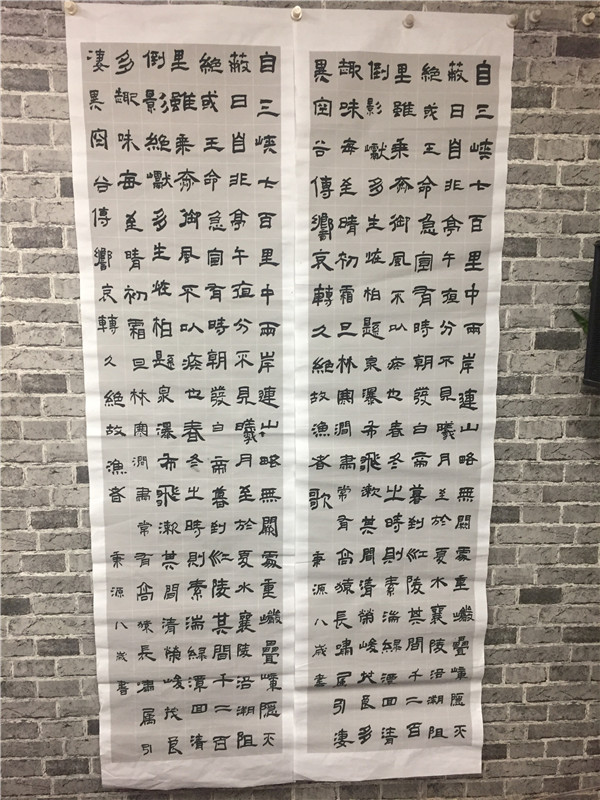 自三峽七百里中兩岸連山略無闕處重巖疊嶂隱天
蔽日自非亭午夜分不見曦月至於夏水襄陵沿溯阻
絕或王命急宣有時朝發白帝暮到江陵其間千二百
里雖乘奔御風不以疾也春冬之時則素湍綠潭回清
倒影巘多生怪柏懸泉瀑布飛漱其間清榮峻茂良多
趣味每至晴初霜旦林寒澗肅常有高猿長嘯屬引淒
異空谷傳響哀轉久絕故漁者歌 秉源八歲書
自三峽七百里中兩岸連山略無闕處重巖疊嶂隱天
蔽日自非亭午夜分不見曦月至於夏水襄陵沿溯阻
絕或王命急宣有時朝發白帝暮到江陵其間千二百
里雖乘奔御風不以疾也春冬之時則素湍綠潭回清
倒影絕巘多生怪柏懸泉瀑布飛漱其間清榮峻茂良
多趣味每至晴初霜旦林寒澗肅常有高猿長嘯屬引
淒異空谷傳響哀轉久絕故漁者 秉源八歲書